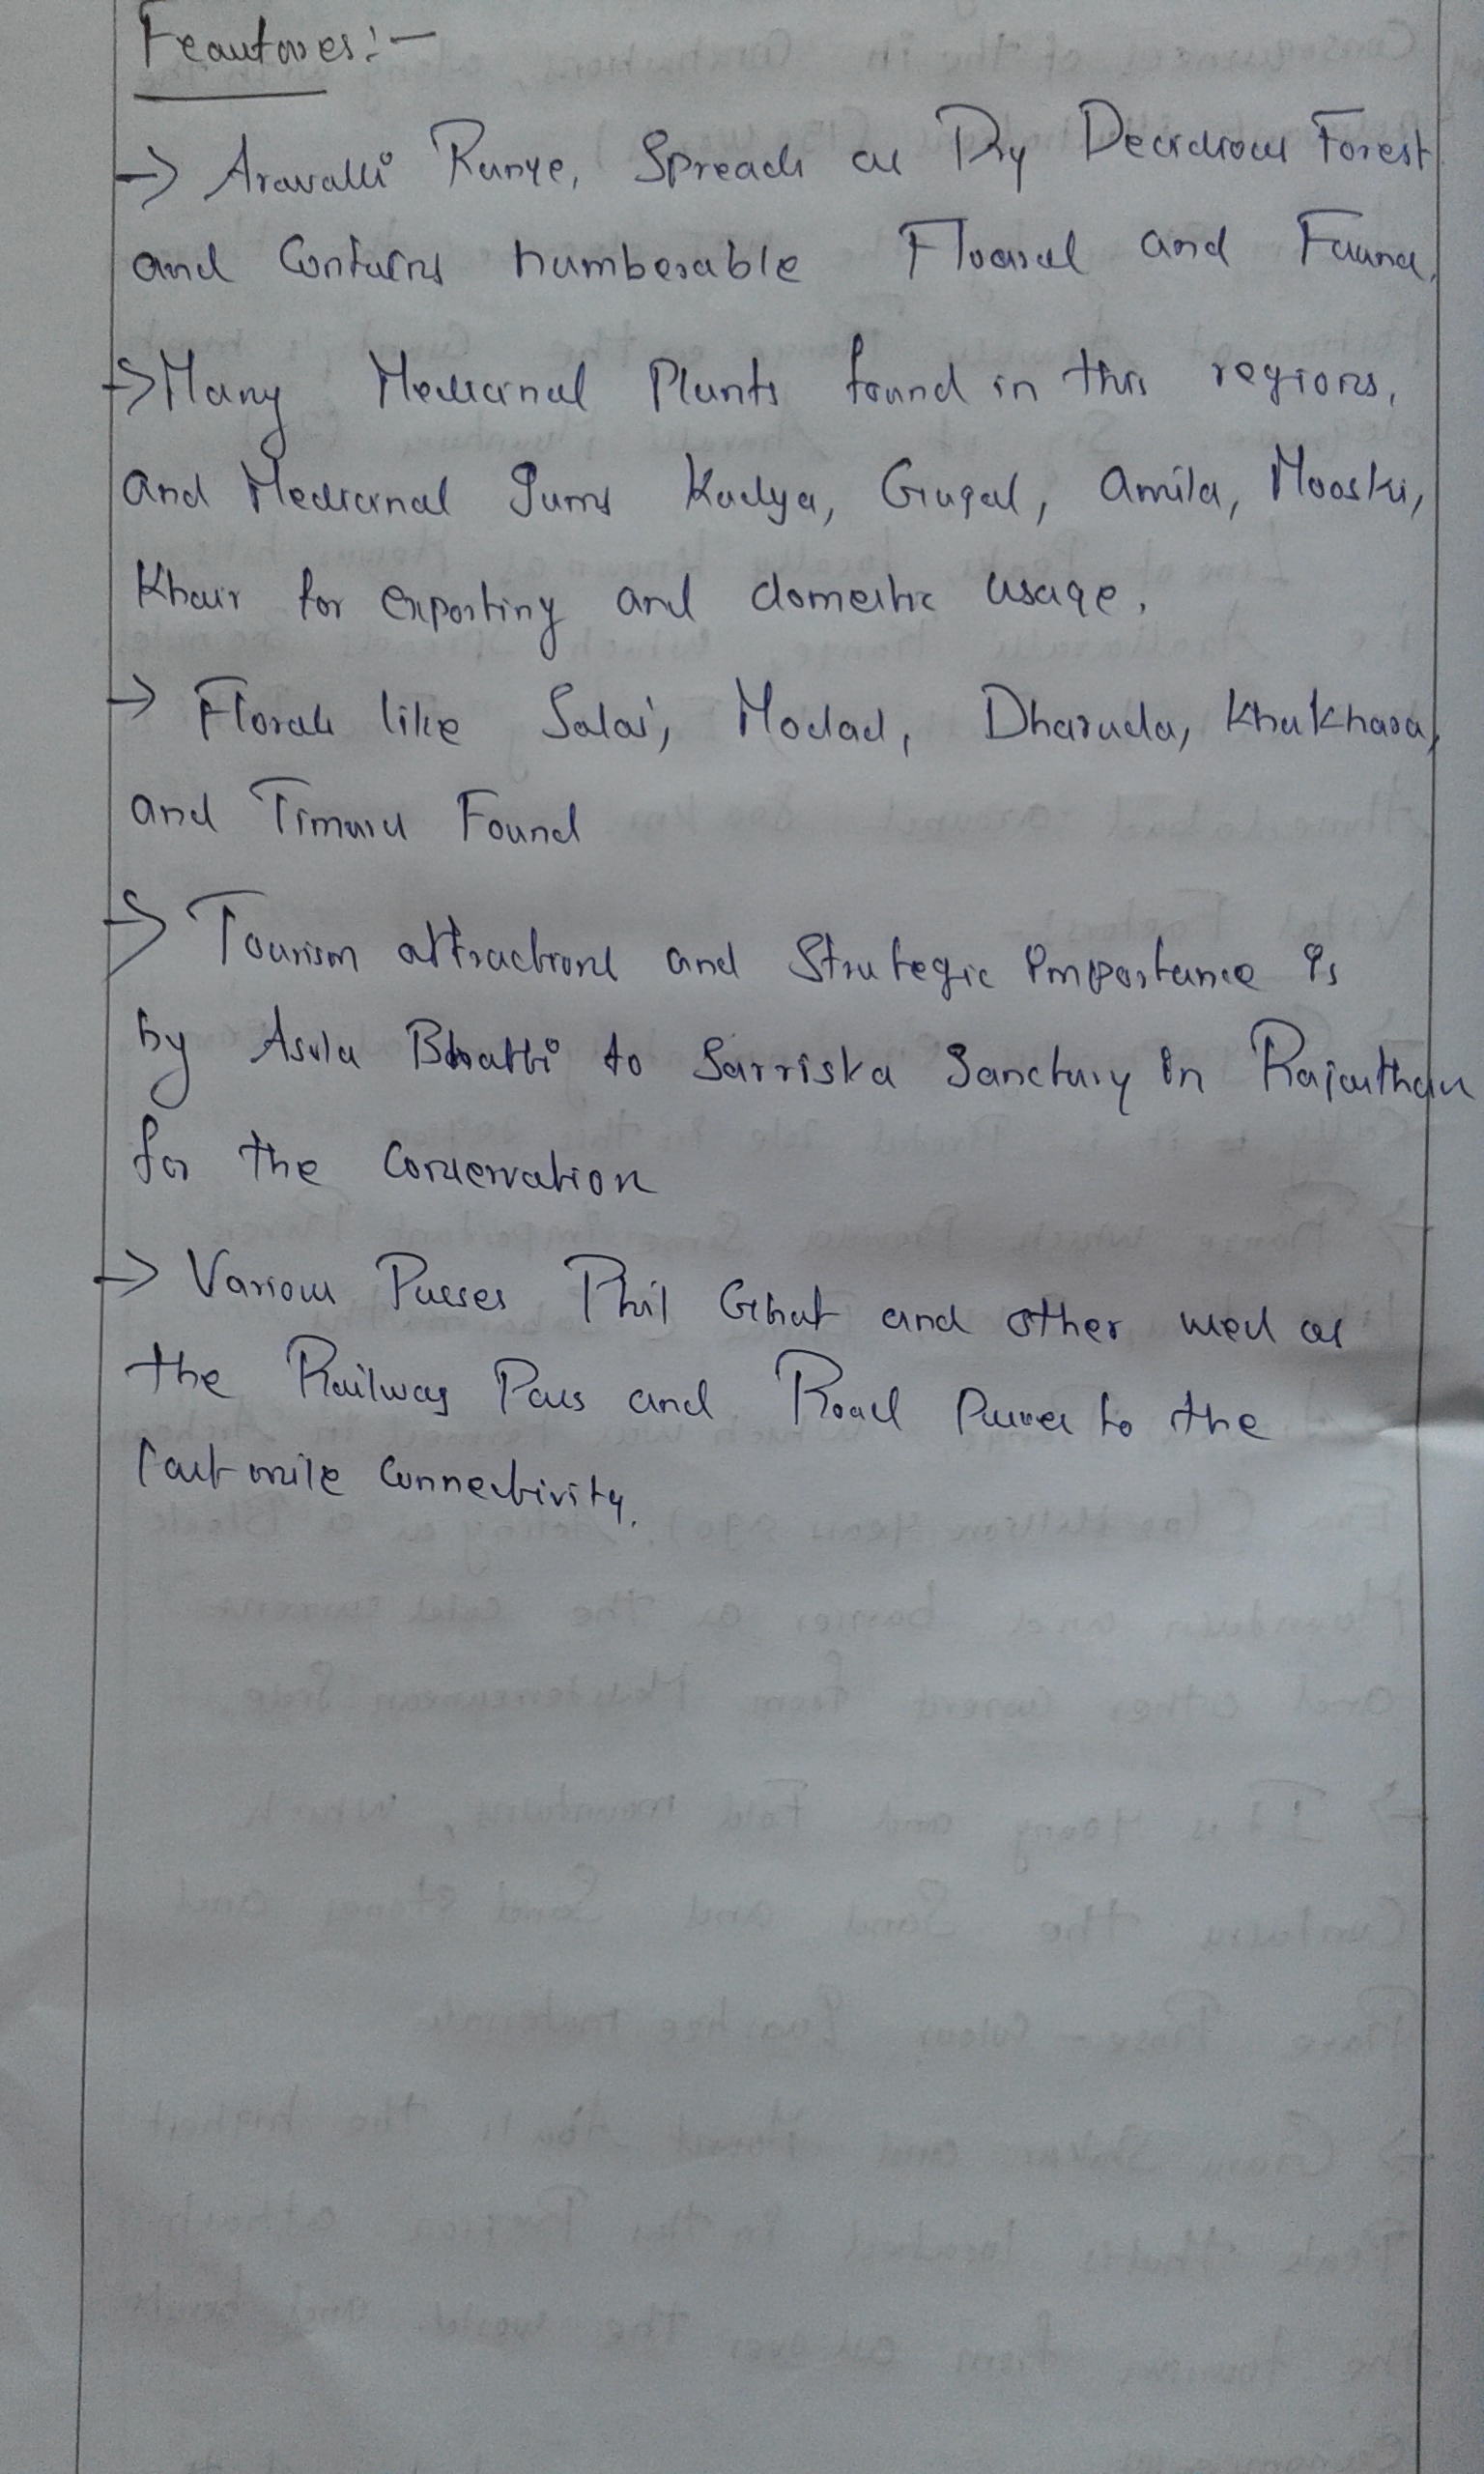 Feautores:-
→ Aravalli Range, Spreads as Dry Decidious Forest
and Contains numberable Floaral and Fauna.
→ Many Medicinal Plants found in this regions,
and Medicinal gums Kadya, Gugal, amila, Mooski,
Khair for exporting and domestic usage.
→ Florals like Salai, Modad, Dharuda, Khakhara,
and Timaru Found
→ Tourism attractions and Strategic importance is
by Asola Bhatti to Sarriska Sanctury in Rajasthan
for the Conservation
→ Various Passes Phil Ghat and other used as
the Railway Pass and Road Passes to the
last mile Connectivity.